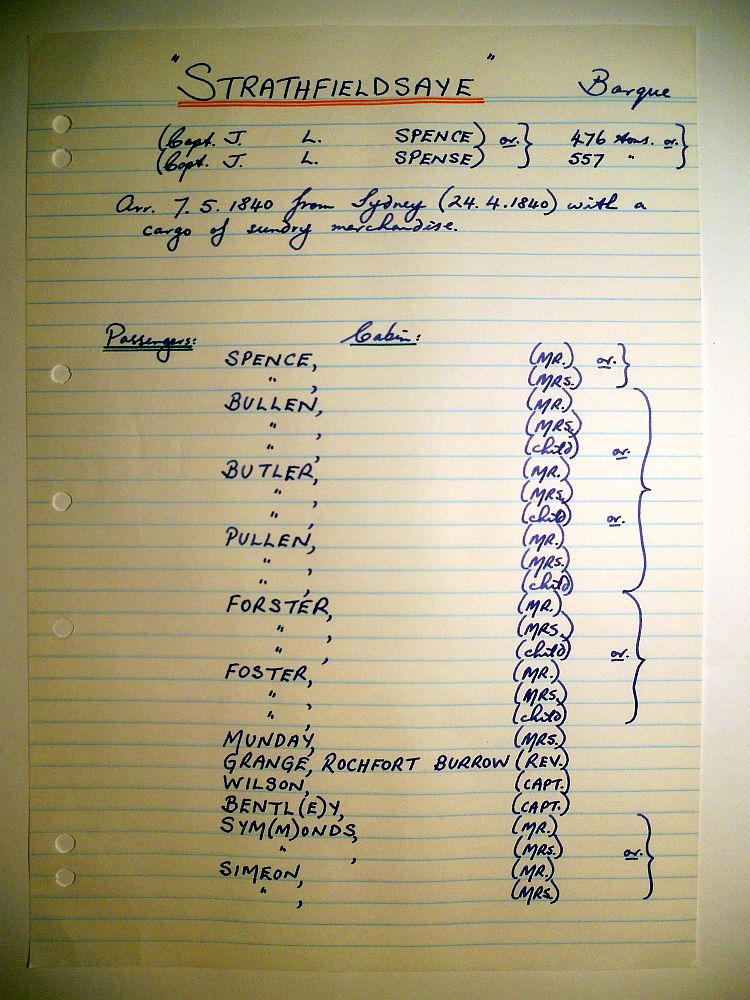 "STRATHFIELDSAYE" Barque
(Capt. J. L. SPENCE) or. } 476 tons. or. }
(Capt. J. L. SPENSE) 557 "
Arr. 7.5.1840 from Sydney (24.4.1840) with a
cargo of sundry merchandise.
Passengers: Cabin:
SPENCE, (MR.) or. }
" , (MRS.)
BULLEN, (MR.)
" , (MRS.)
" , (child) or.
BUTLER, (MR.)
" , (MRS.)
" , (child) or.
PULLEN, (MR.)
" , (MRS.)
" , (child)
FORSTER, (MR.)
" , (MRS.)
" , (child) or.
FOSTER, (MR.)
" , (MRS.)
" , (child)
MUNDAY, (MRS.)
GRANGE, ROCHFORT BURROW (REV.)
WILSON, (CAPT.)
BENTL(E)Y, (CAPT.)
SYM(M)ONDS, (MR.)
" , (MRS.) or.
SIMEON, (MR.)
" , (MRS.)